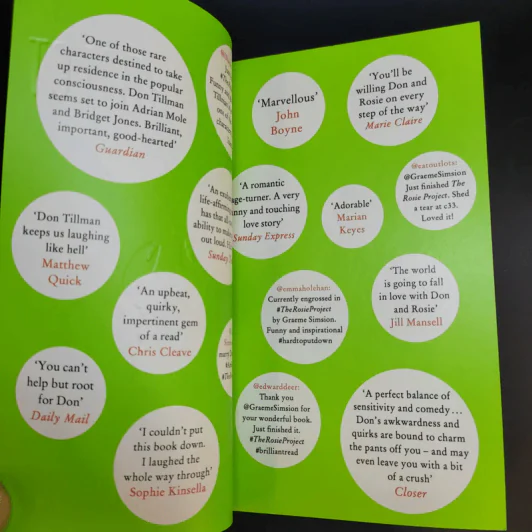 'One of those rare
characters destined to take
up residence in the popular
consciousness. Don Tillman
seems set to join Adrian Mole
and Bridget Jones. Brilliant,
important, good-hearted'
Guardian
'Don Tillman
keeps us laughing
like hell'
Matthew
Quick
'An upbeat,
quirky,
impertinent gem
of a read'
Chris Cleave
'You can't
help but root
for Don'
Daily Mail
'I couldn't put
this book down.
I laughed the
whole way through'
Sophie Kinsella
life-affirm
has that
ability to
out loud.
'Marvellous'
John
Boyne
'You'll be
willing Don and
Rosie on every
step of the way'
Marie Claire
'A romantic
age-turner. A very
nny and touching
love story'
Sunday Express
'Adorable'
Marian
Keyes
@GraemeSimsion
Just finished The
Rosie Project. Shed
a tear at c33.
Loved it!
@emmaholehan:
Currently engrossed in
#TheRosieProject
by Graeme Simsion.
Funny and inspirational
#hardtoputdown
'The world
is going to fall
in love with Don
and Rosie'
Jill Mansell
@edwarddeer:
Thank you
@GraemeSimsion for
your wonderful book.
Just finished it.
#TheRosieProject
#brilliantread
'A perfect balance of
sensitivity and comedy...
Don's awkwardness and
quirks are bound to charm
the pants off you – and may
even leave you with a bit
of a crush'
Closer